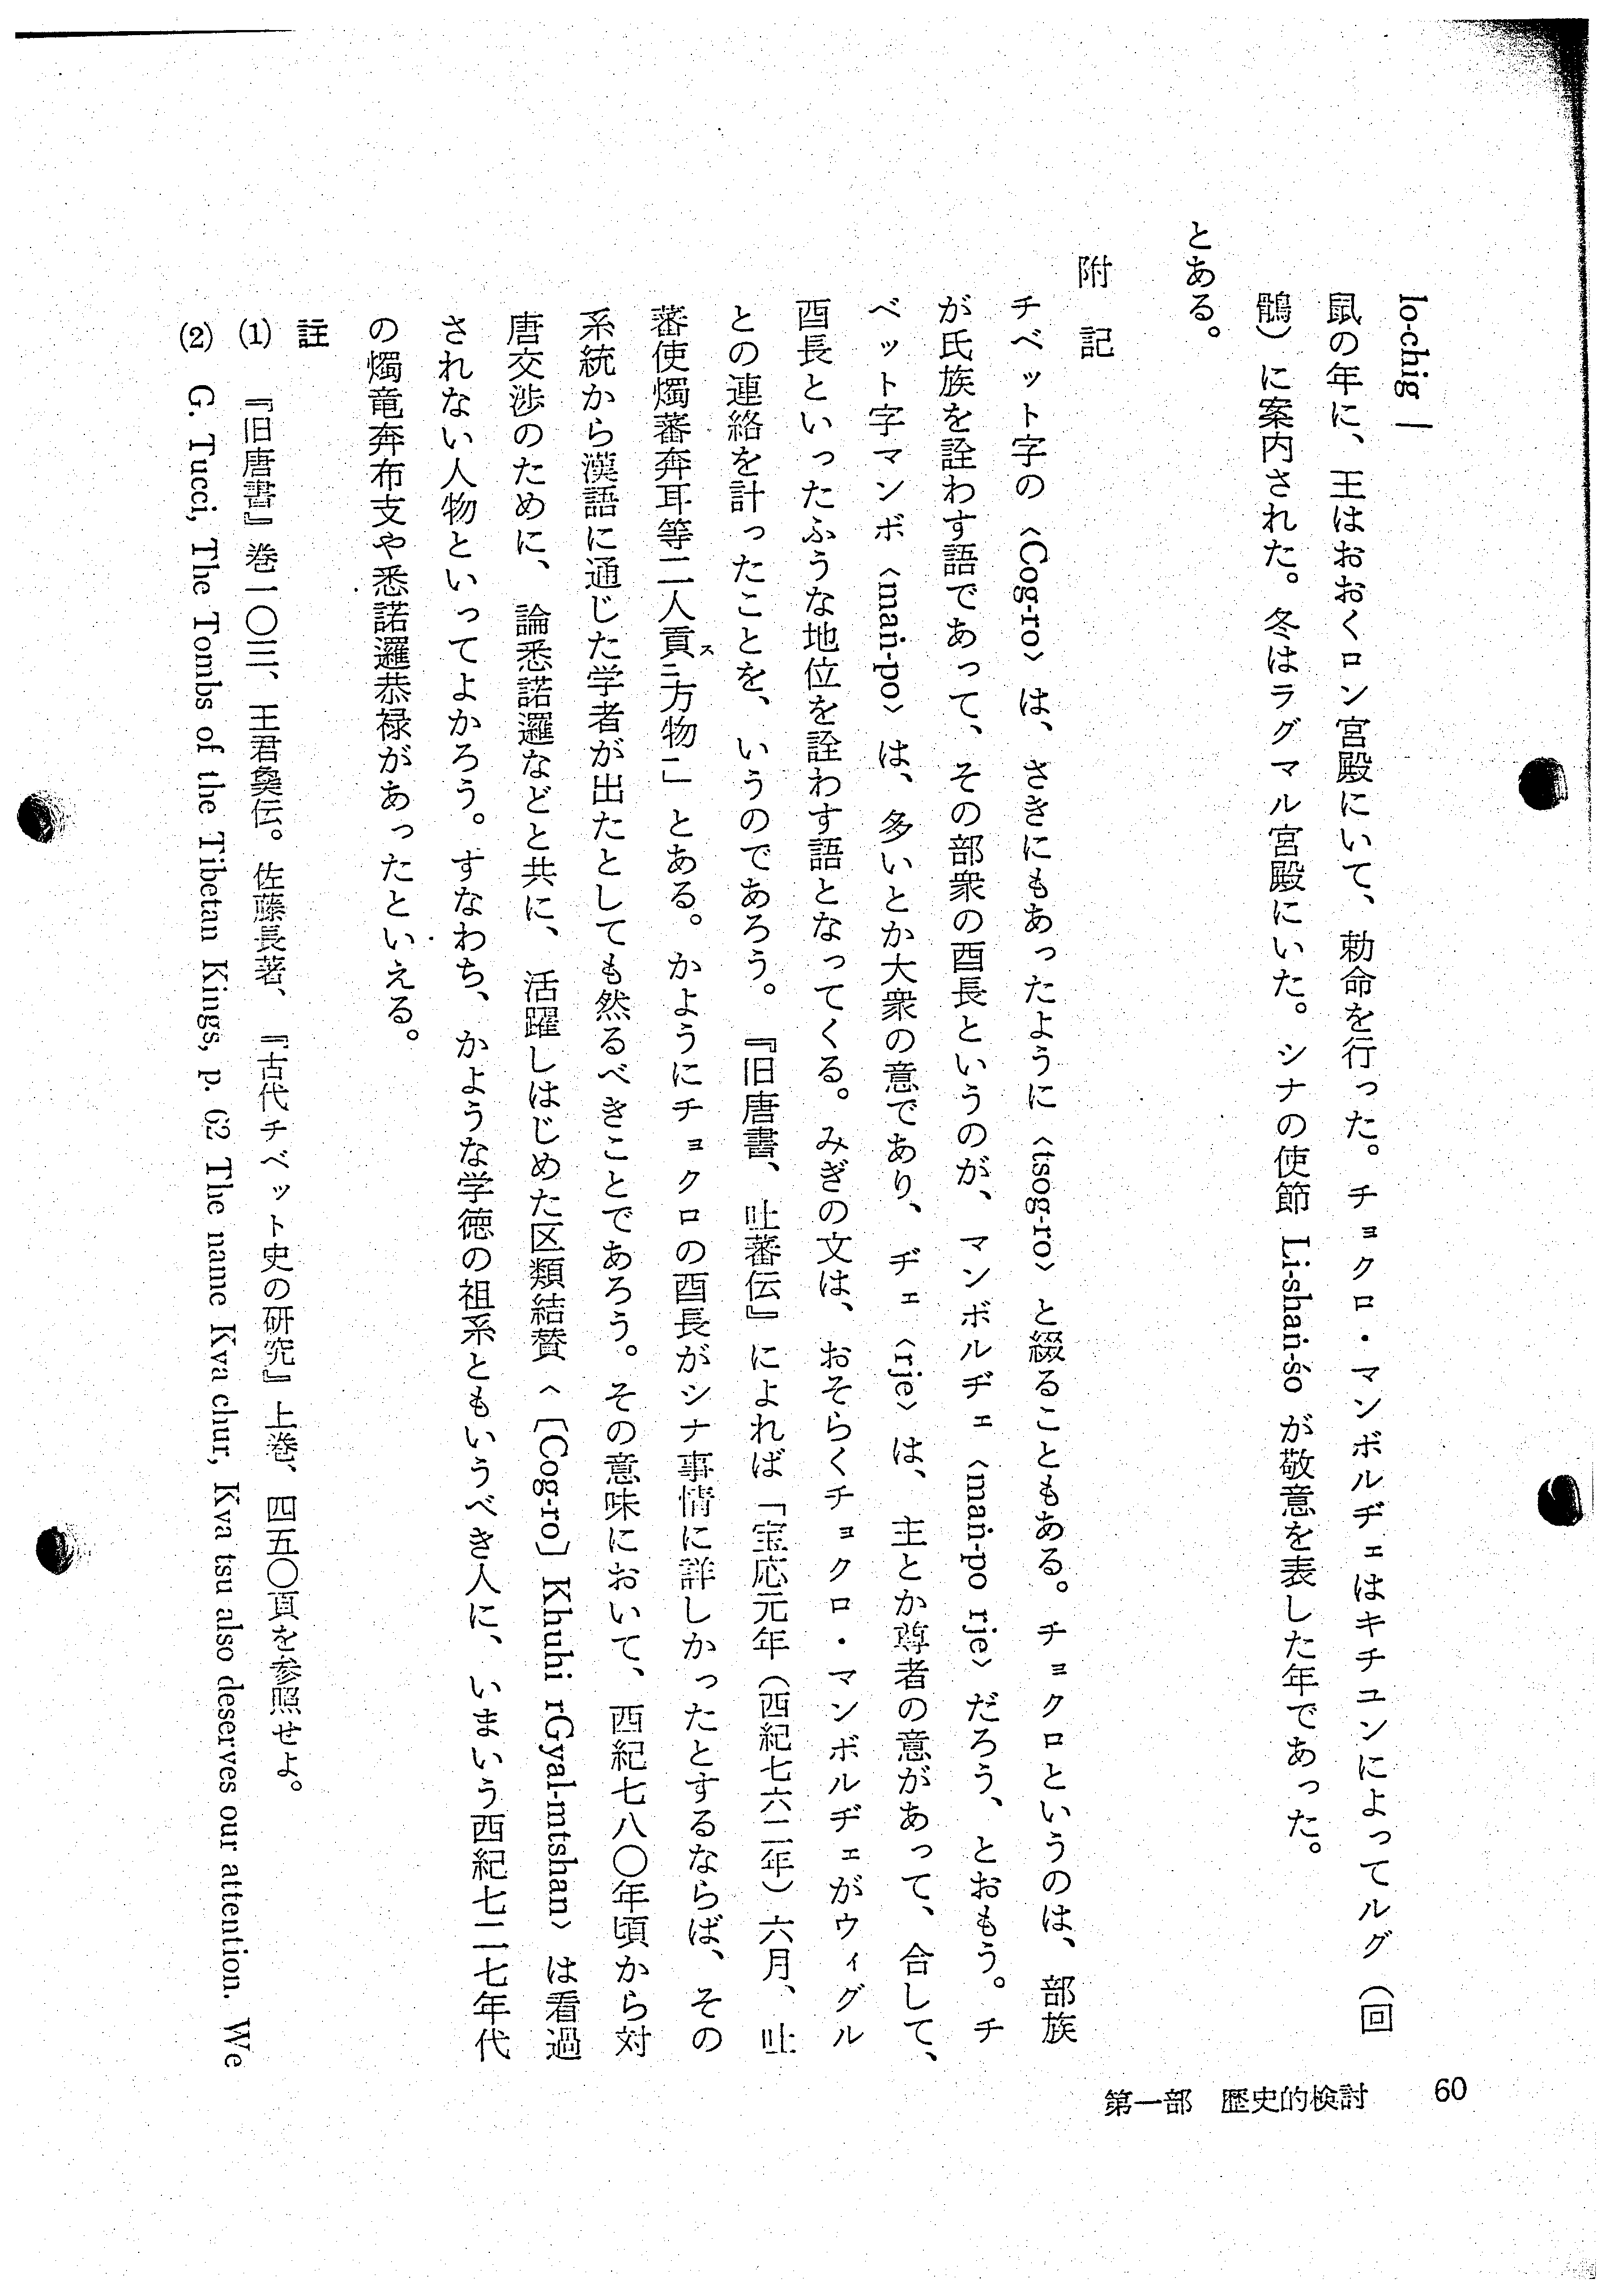 lo-chig |
鼠の年に、王はおおくロン宮殿にいて、勅命を行った。チョクロ・マンボルヂェはキチュンによってルグ（回
鶻）に案内された。冬はラグマル宮殿にいた。シナの使節 Li-shaṅ-śo が敬意を表した年であった。
とある。
附 記
チベット字の〈Cog-ro〉は、さきにもあったように〈tsog-ro〉と綴ることもある。チョクロというのは、部族
が氏族を詮わす語であって、その部衆の酋長というのが、マンボルヂェ〈maṅ-po rje〉だろう、とおもう。チ
ベット字マンボ〈maṅ-po〉は、多いとか大衆の意であり、ヂェ〈rje〉は、主とか尊者の意があって、合して、
酋長といったふうな地位を詮わす語となってくる。みぎの文は、おそらくチョクロ・マンボルヂェがウィグル
との連絡を計ったことを、いうのであろう。『旧唐書、吐蕃伝』によれば「宝応元年（西紀七六二年）六月、吐
蕃使燭蕃奔耳等二人貢ス㆓方物㆒」とある。かようにチョクロの酋長がシナ事情に詳しかったとするならば、その
系統から漢語に通じた学者が出たとしても然るべきことであろう。その意味において、西紀七八〇年頃から対
唐交渉のために、論悉諾邏などと共に、活躍しはじめた区類結賛〈［Cog-ro］Khuhi rGyal-mtshan〉は看過
されない人物といってよかろう。すなわち、かような学徳の祖系ともいうべき人に、いまいう西紀七二七年代
の燭竜奔布支や悉諾邏恭禄があったといえる。
註
(1) 『旧唐書』巻一〇三、王君㚟伝。佐藤長著、『古代チベット史の研究』上巻、四五〇頁を参照せよ。
(2) G. Tucci, The Tombs of the Tibetan Kings, p. 62 The name Kva chur, Kva tsu also deserves our attention. We
第一部 歴史的検討
60